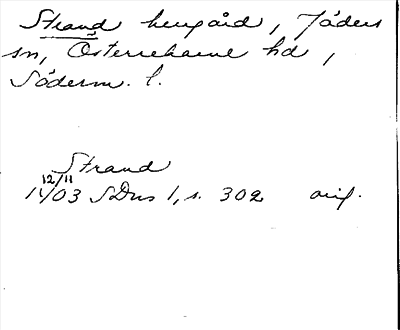 Strand herrgård, Jäders
sn, Österrekarne hd,
Söderm. l.
Strand
12/11
1403 SDns 1, s. 302 orig.